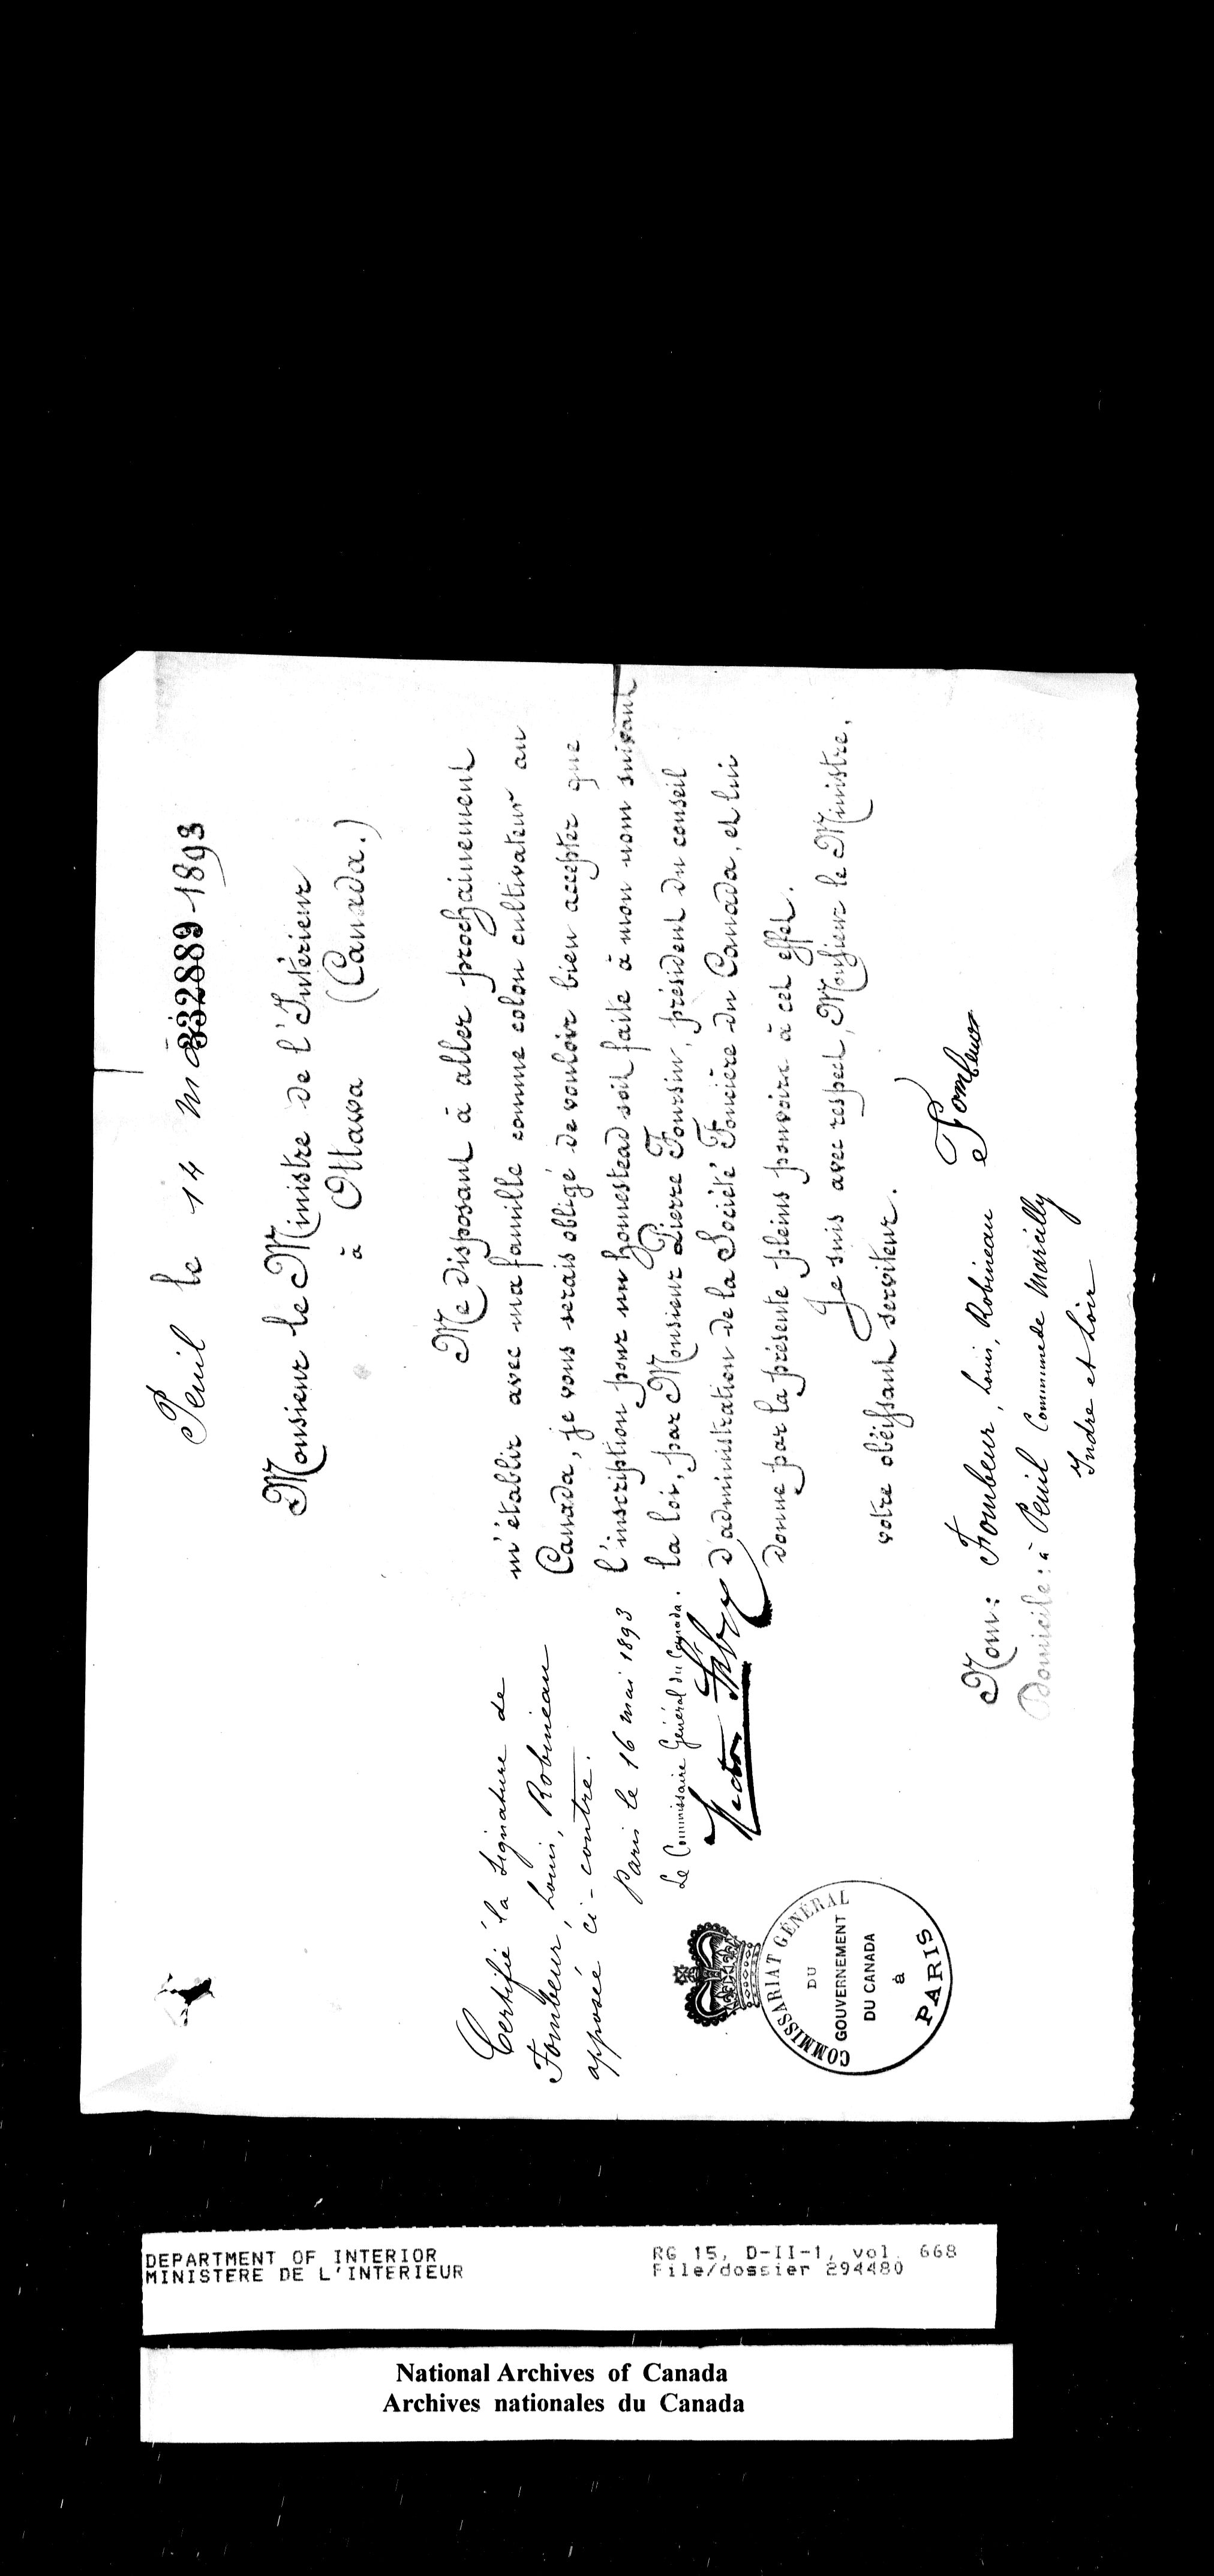 Peuil le 14 Mai 332889-1893
Monsieur le Ministre de l'Intérieur
à Ottawa (Canada.)
Me disposant à aller prochainement
m'établir avec ma famille comme colon cultivateur au
Canada, je vous serais obligé de vouloir bien accepter que
l'inscription pour un homestead soit faite à mon nom suivant
la loi, par Monsieur Pierre Foursin, président du conseil
d'administration de la Société Foncière du Canada, et lui
donne par la présente pleins pouvoirs à cet effet.
Je suis avec respect, Monsieur le Ministre,
votre obéissant serviteur.
Fombeur
Nom: Fombeur, Louis, Robineau
Domicile: à Peuil Commune de Marcilly
Indre et Loir
Certifié la signature de
Fombeur, Louis, Robineau
apposée ci-contre.
Paris le 16 mai 1893
Le Commissaire Général du Canada.
Hector Fabre
COMMISSARIAT GÉNÉRAL
DU
GOUVERNEMENT
DU CANADA
à
PARIS
DEPARTMENT OF INTERIOR
MINISTERE DE L'INTERIEUR
RG 15, D-II-1, vol. 668
File/dossier 294480
National Archives of Canada
Archives nationales du Canada